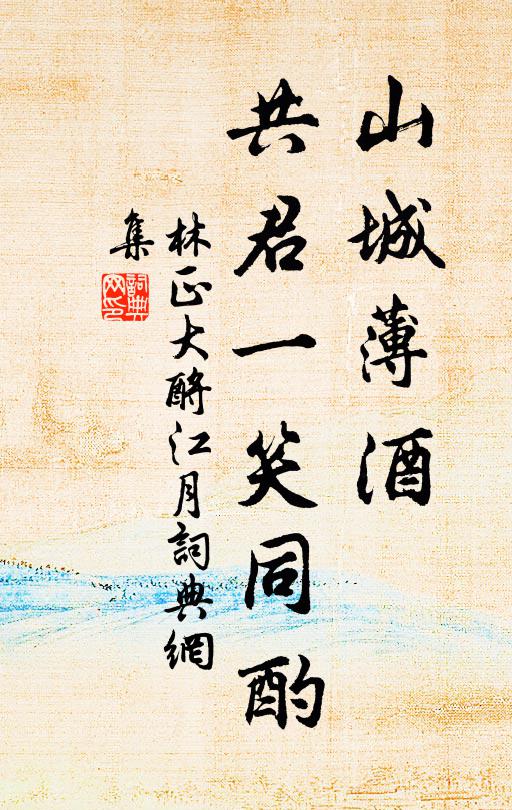 山城薄酒
共君一笑同酌
林正大酹江月詞典網
集
詞典网印